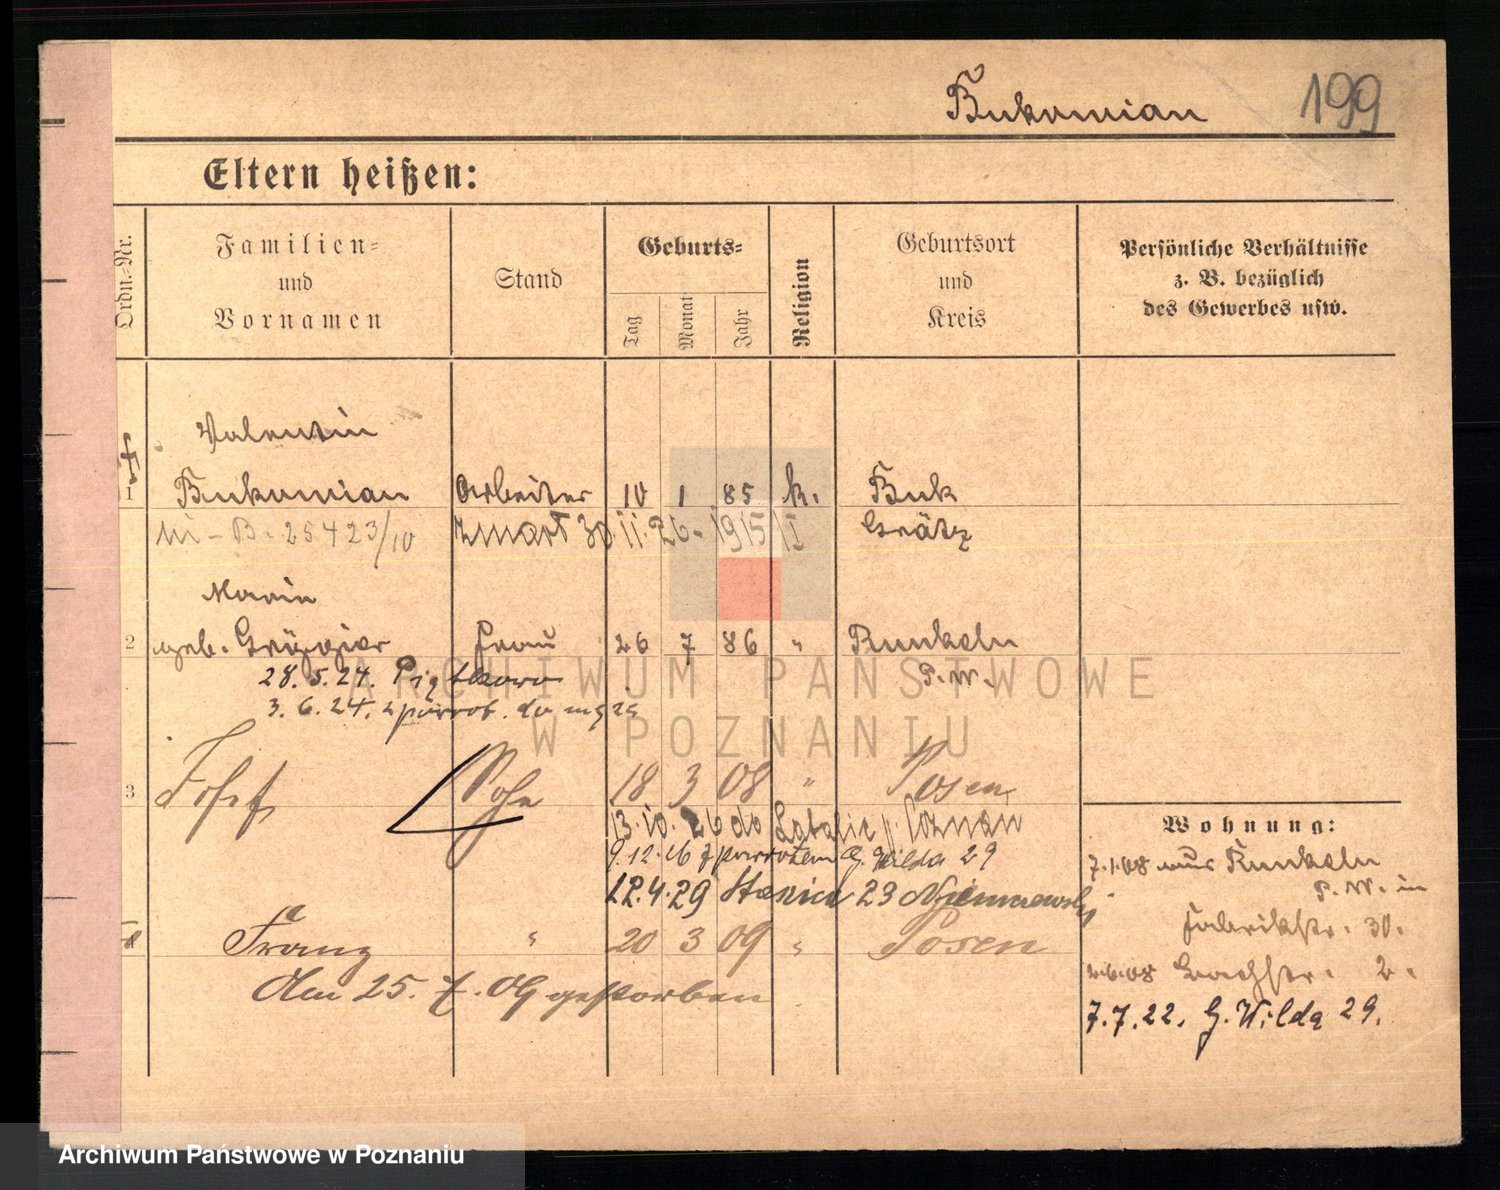 Bukowian 199
Eltern heißen:
Ordn.-Nr.
Familien-
und
Vornamen
Stand
Geburts-
Tag
Monat
Jahr
Religion
Geburtsort
und
Kreis
Persönliche Verhältnisse
z. B. bezüglich
des Gewerbes usw.
Valentin
1 Bukowian Arbeiter 10 1 85 k. Buk
25423/10 zmarł 30.11.26 - 1915/I Grätz
Maria
2 geb. Frau 26 7 86 " Runkeln
28.5.24. Piątkowo P.W.
3.6.24. z powrot. do męża
3 Josef Sohn 18 3 08 " Posen
13.10.26 do p. Poznań
9.12.26 z powrotem G. Wilda 29
12.4.29 23
Franz " 20 3 09 " Posen
Am 25. 7. 09 gestorben
Wohnung:
7.1.08 aus Runkeln
P.W. in
Fabrikstr. 30.
Bachstr. 2.
7.7.22. G. Wilda 29.
ARCHIWUM PAŃSTWOWE
W POZNANIU
Archiwum Państwowe w Poznaniu